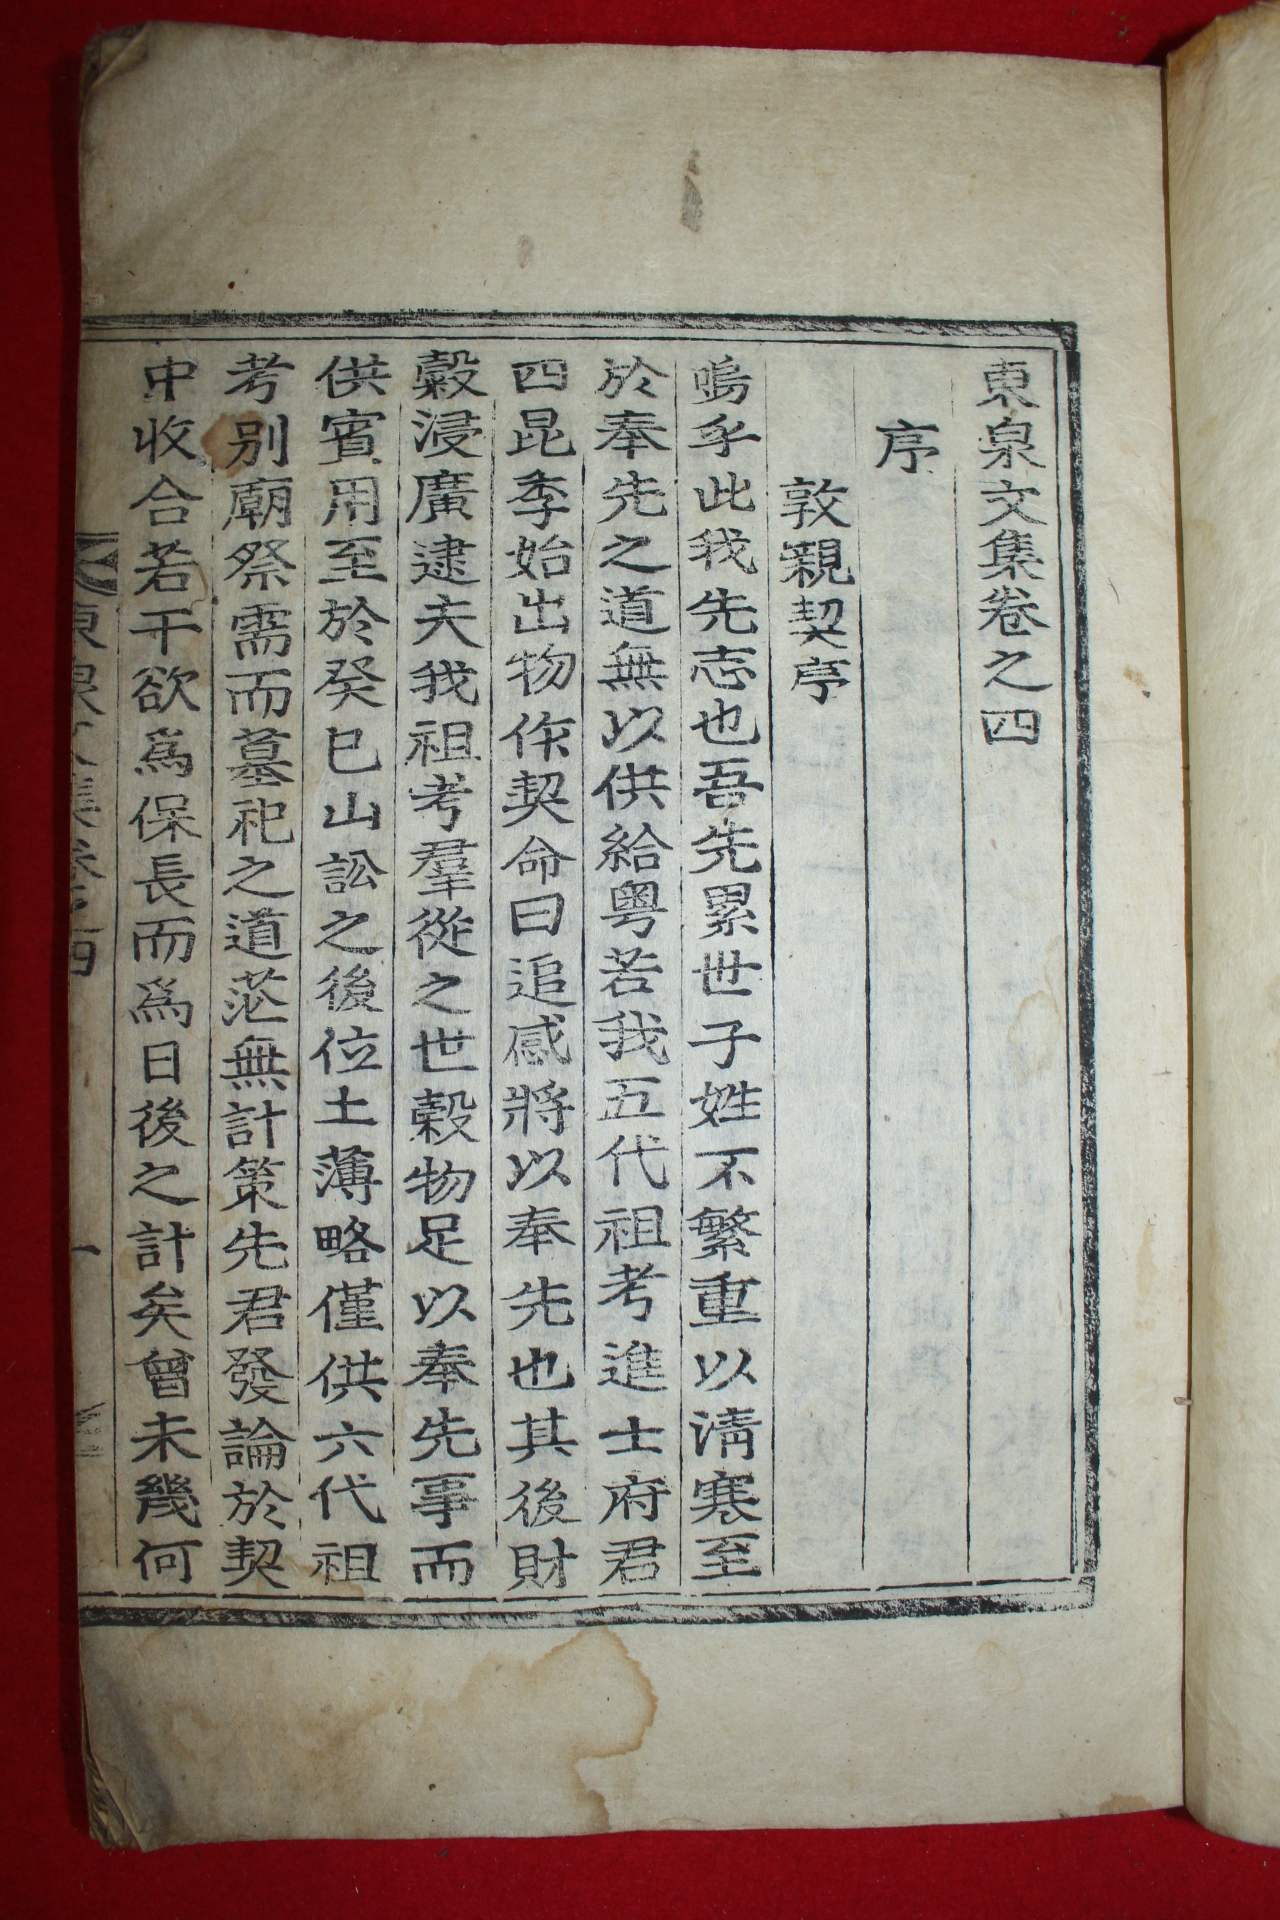 東泉文集卷之四
序
敦親契序
嗚乎此我先志也吾先累世子姓不繁重以淸寒至
於奉先之道無以供給粤若我五代祖考進士府君
四昆季始出物作契命曰追感將以奉先也其後財
糓浸廣逮夫我祖考羣從之世糓物足以奉先事而
供賓用至於癸巳山訟之後位土薄略僅供六代祖
考別廟祭需而墓祀之道茫無計策先君發論於契
中收合若干欲爲保長而爲日後之計矣曾未幾何
東泉文集卷之四
一